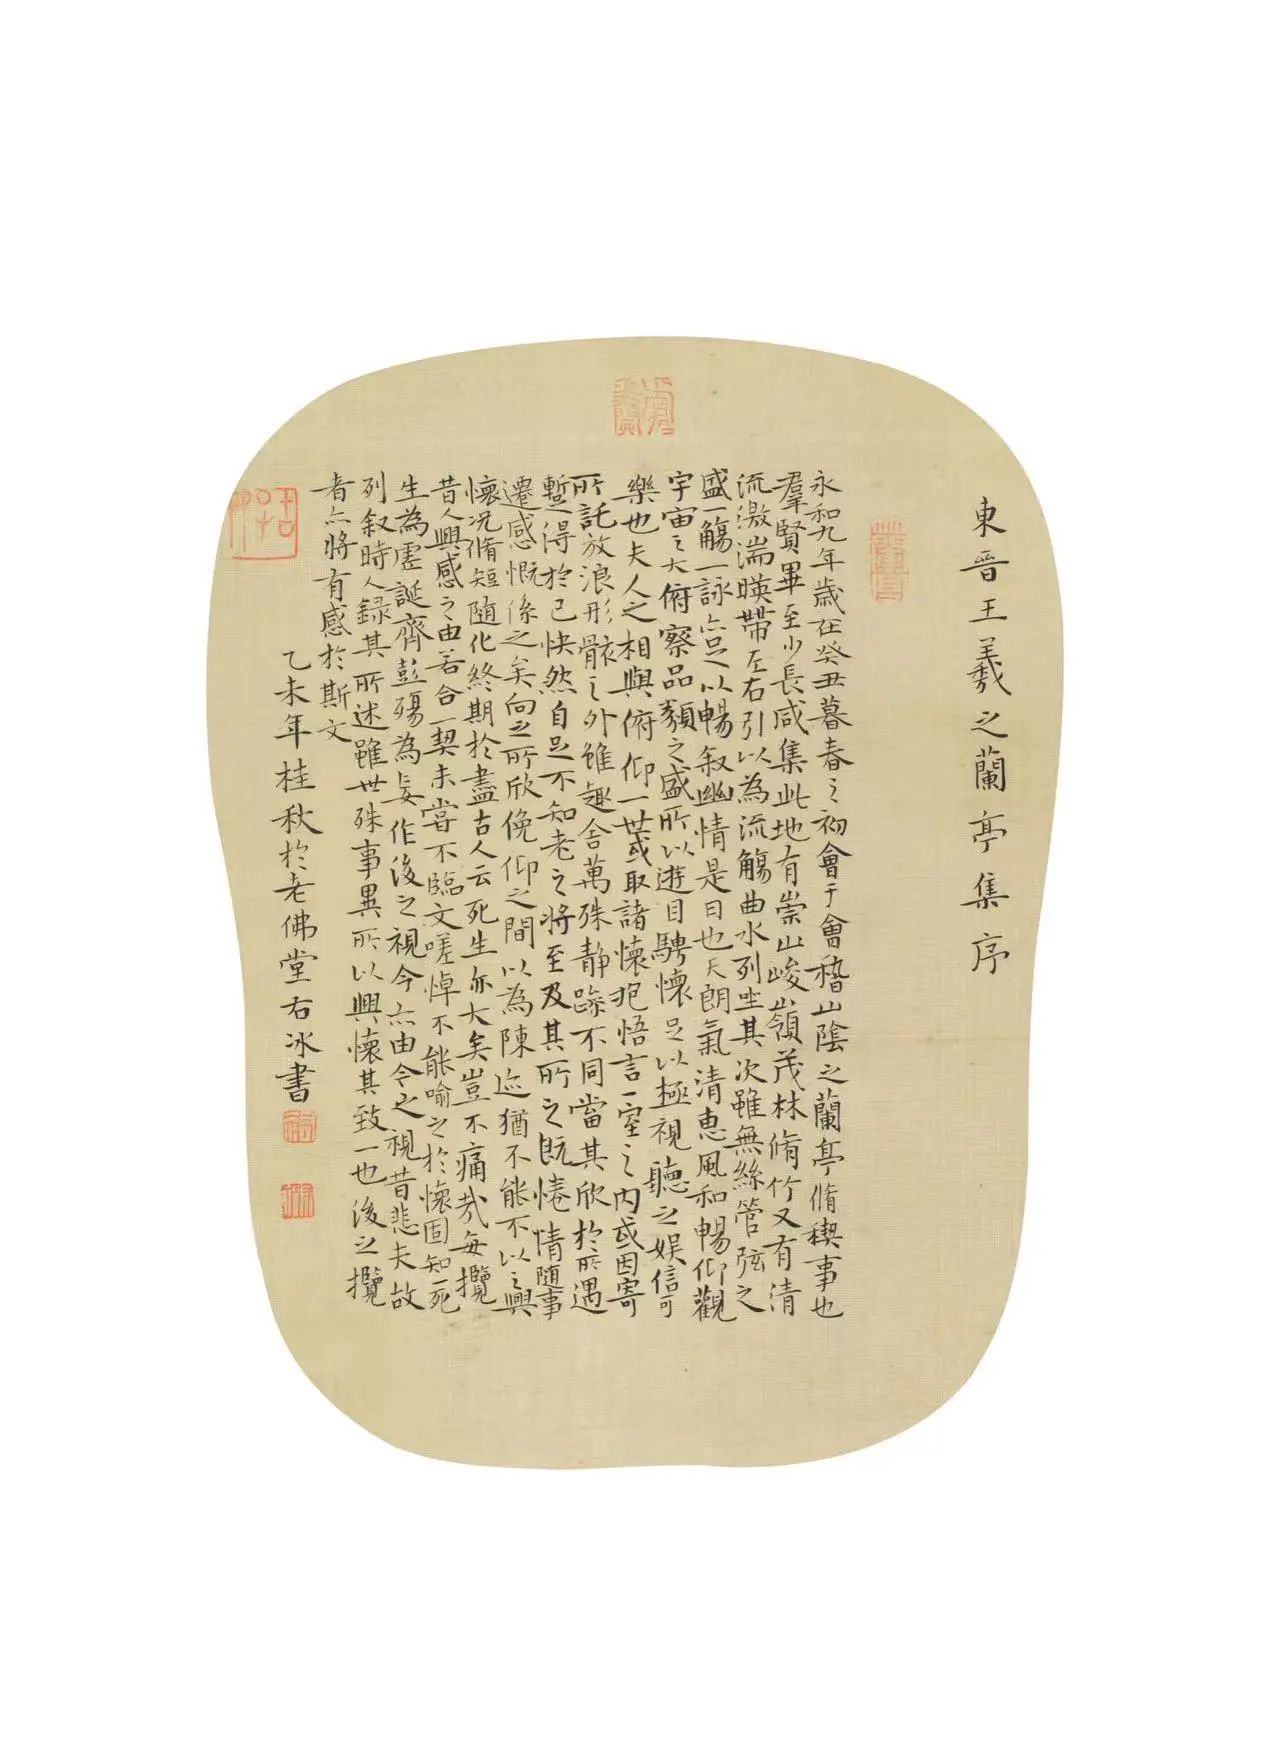 東晉王羲之蘭亭集序
永和九年歲在癸丑暮春之初會于會稽山陰之蘭亭脩稧事也
羣賢畢至少長咸集此地有崇山峻嶺茂林脩竹又有清
流激湍暎帶左右引以為流觴曲水列坐其次雖無絲管弦之
盛一觴一詠亦足以暢叙幽情是日也天朗氣清惠風和暢仰觀
宇宙之大俯察品類之盛所以遊目騁懷足以極視聽之娱信可
樂也夫人之相與俯仰一世或取諸懷抱悟言一室之内或因寄
所託放浪形骸之外雖趣舍萬殊静躁不同當其欣於所遇
暫得於己快然自足不知老之將至及其所之既惓情隨事
遷感慨係之矣向之所欣俛仰之間以為陳迹猶不能不以之興
懷況脩短隨化終期於盡古人云死生亦大矣豈不痛哉每攬
昔人興感之由若合一契未嘗不臨文嗟悼不能喻之於懷固知一死
生為虛誕齊彭殤為妄作後之視今亦由今之視昔悲夫故
列叙時人録其所述雖世殊事異所以興懷其致一也後之攬
者亦將有感於斯文
乙未年桂秋於老佛堂右冰書